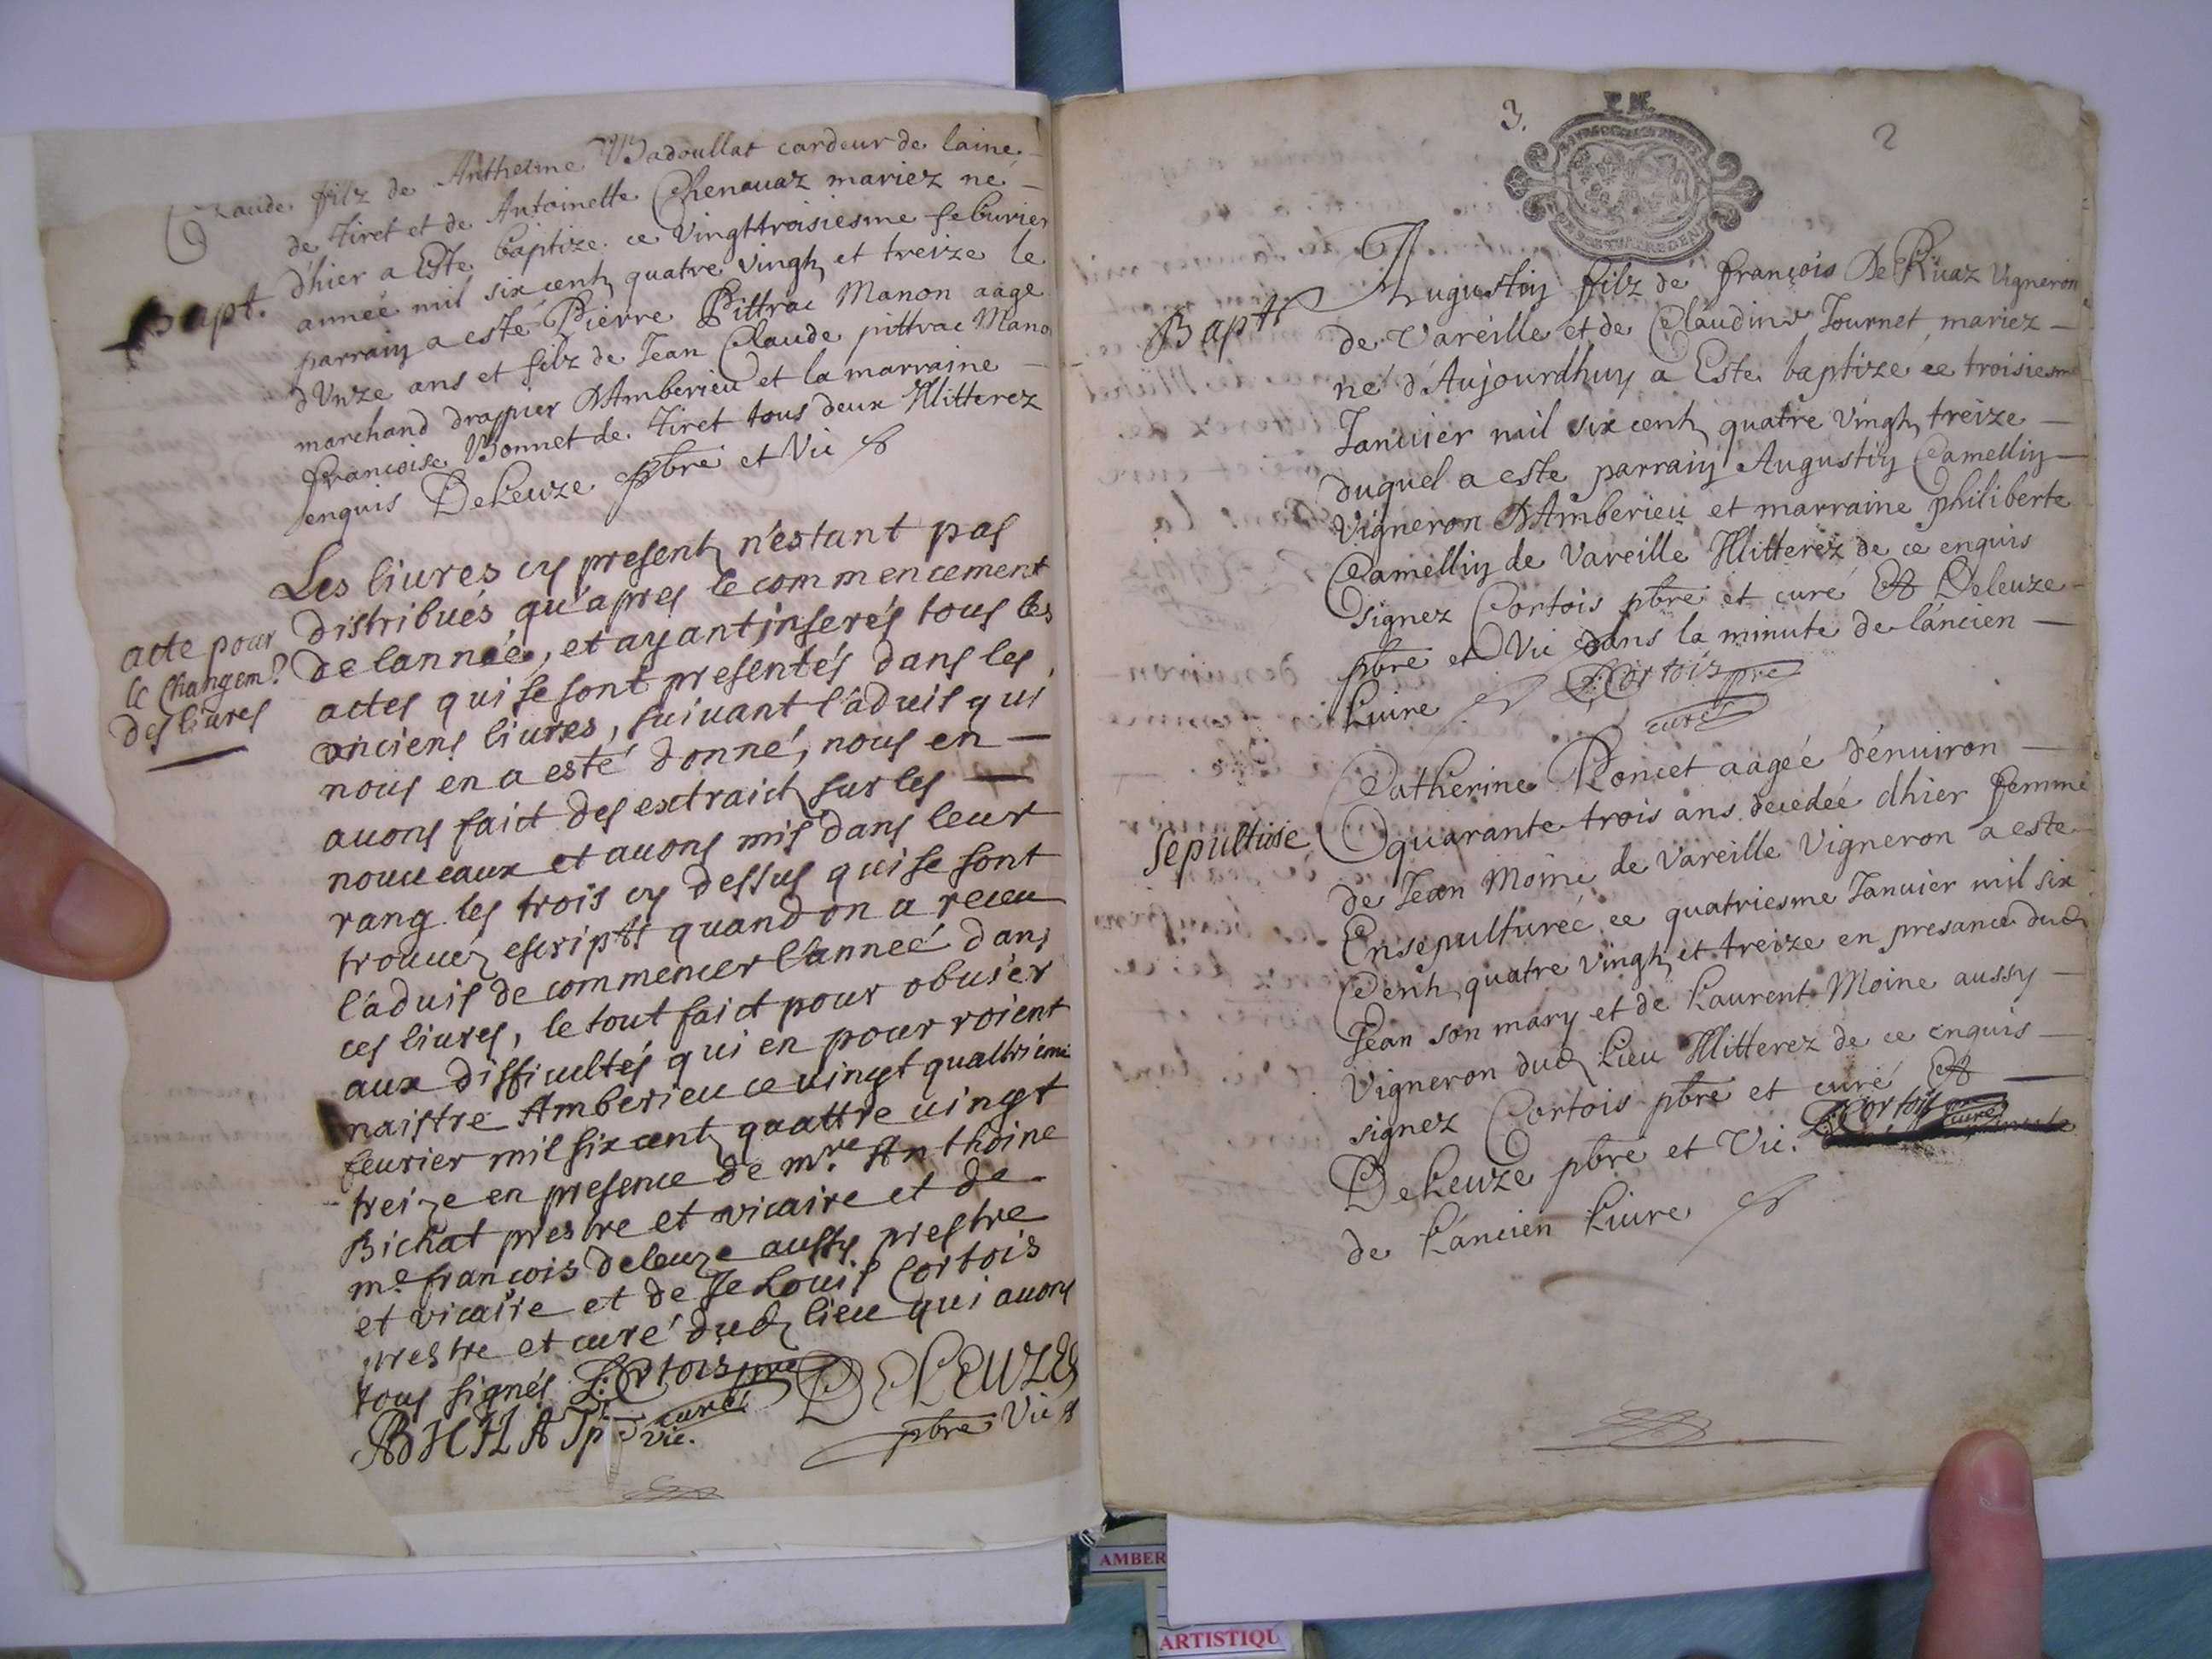 Claude filz de Anthelme Badoullat cardeur de laine
de Tiret et de Antoinette Chenauaz mariez né
Bapt.
d'hier a Este baptize ce vingttroisiesme feburier
année mil six centz quatre vingtz et treize le
parrain a esté Pierre Pittrac Manon aage
d'Unze ans et filz de Jean Claude pittrac Mano
marchand drappier d'Amberieu et la marraine
francoise Bonnet de Tiret tous deux Illitterez
enquis DeLeuze pbre et Vic
Les liures cy presentz n'estant pas
distribués qu'apres le commencement
acte pour
le changemt
des liures
de lannéé, et ayant jnserés tous les
actes qui se sont presentés dans les
anciens liures, suiuant l'aduis qui
nous en a esté donné, nous en
auons faict des extraictz sur les
nouueaux et auons mis dans leur
rang les trois cy dessus qui se sont
trouuez escripts quand on a receu
l'aduis de commencer l'anneé dans
ces liures, le tout faict pour obuier
aux difficultés qui en pourroient
naistre Amberieu ce uingt quattrieme
feurier mil six centz quattre uingt
treize en presence de mre Anthoine
Bichat prestre et vicaire et de
me francois deleuze aussy prestre
et vicaire et de Je Louis Cortois
prestre et curé dudz lieu qui auons
tous signés L: Cortois pre
curé
DELEUZE
pbre Vic
vic.
3.
2
Augustin filz dé françois De Riuaz Vigneron
Bapts
de Vareille et de Claudine Journet mariez
né d'Aujourdhuy a Este baptizé ce troisiesme
Januier mil six centz quatre vingtz treize
duquel a este parrain Augustin Camellin
Vigneron d'Amberieu et marraine philiberte
Camellin de Vareille Illitterez de ce enquis
signez Cortois pbre et curé Et Deleuze
pbre et Vic dans la minute de l'ancien
Liure L: Cortois pre
curé
Catherine Poncet aagée d'énuiron
Sepulture
quarante trois ans decedée dhier femme
de Jean Moine de Vareille Vigneron a este
Ensepulturéé ce quatriesme Januier mil six
Centz quatre vingtz et treize en presance dudz
Jean son mary et de Laurent Moine aussy
Vigneron dudz Lieu Illitterez de ce enquis
signez Cortois pbre et curé Et
DeLeuze pbre et Vic. L: Cortois pre
curé
de L'ancien Liure
AMBER
ARTISTIQU